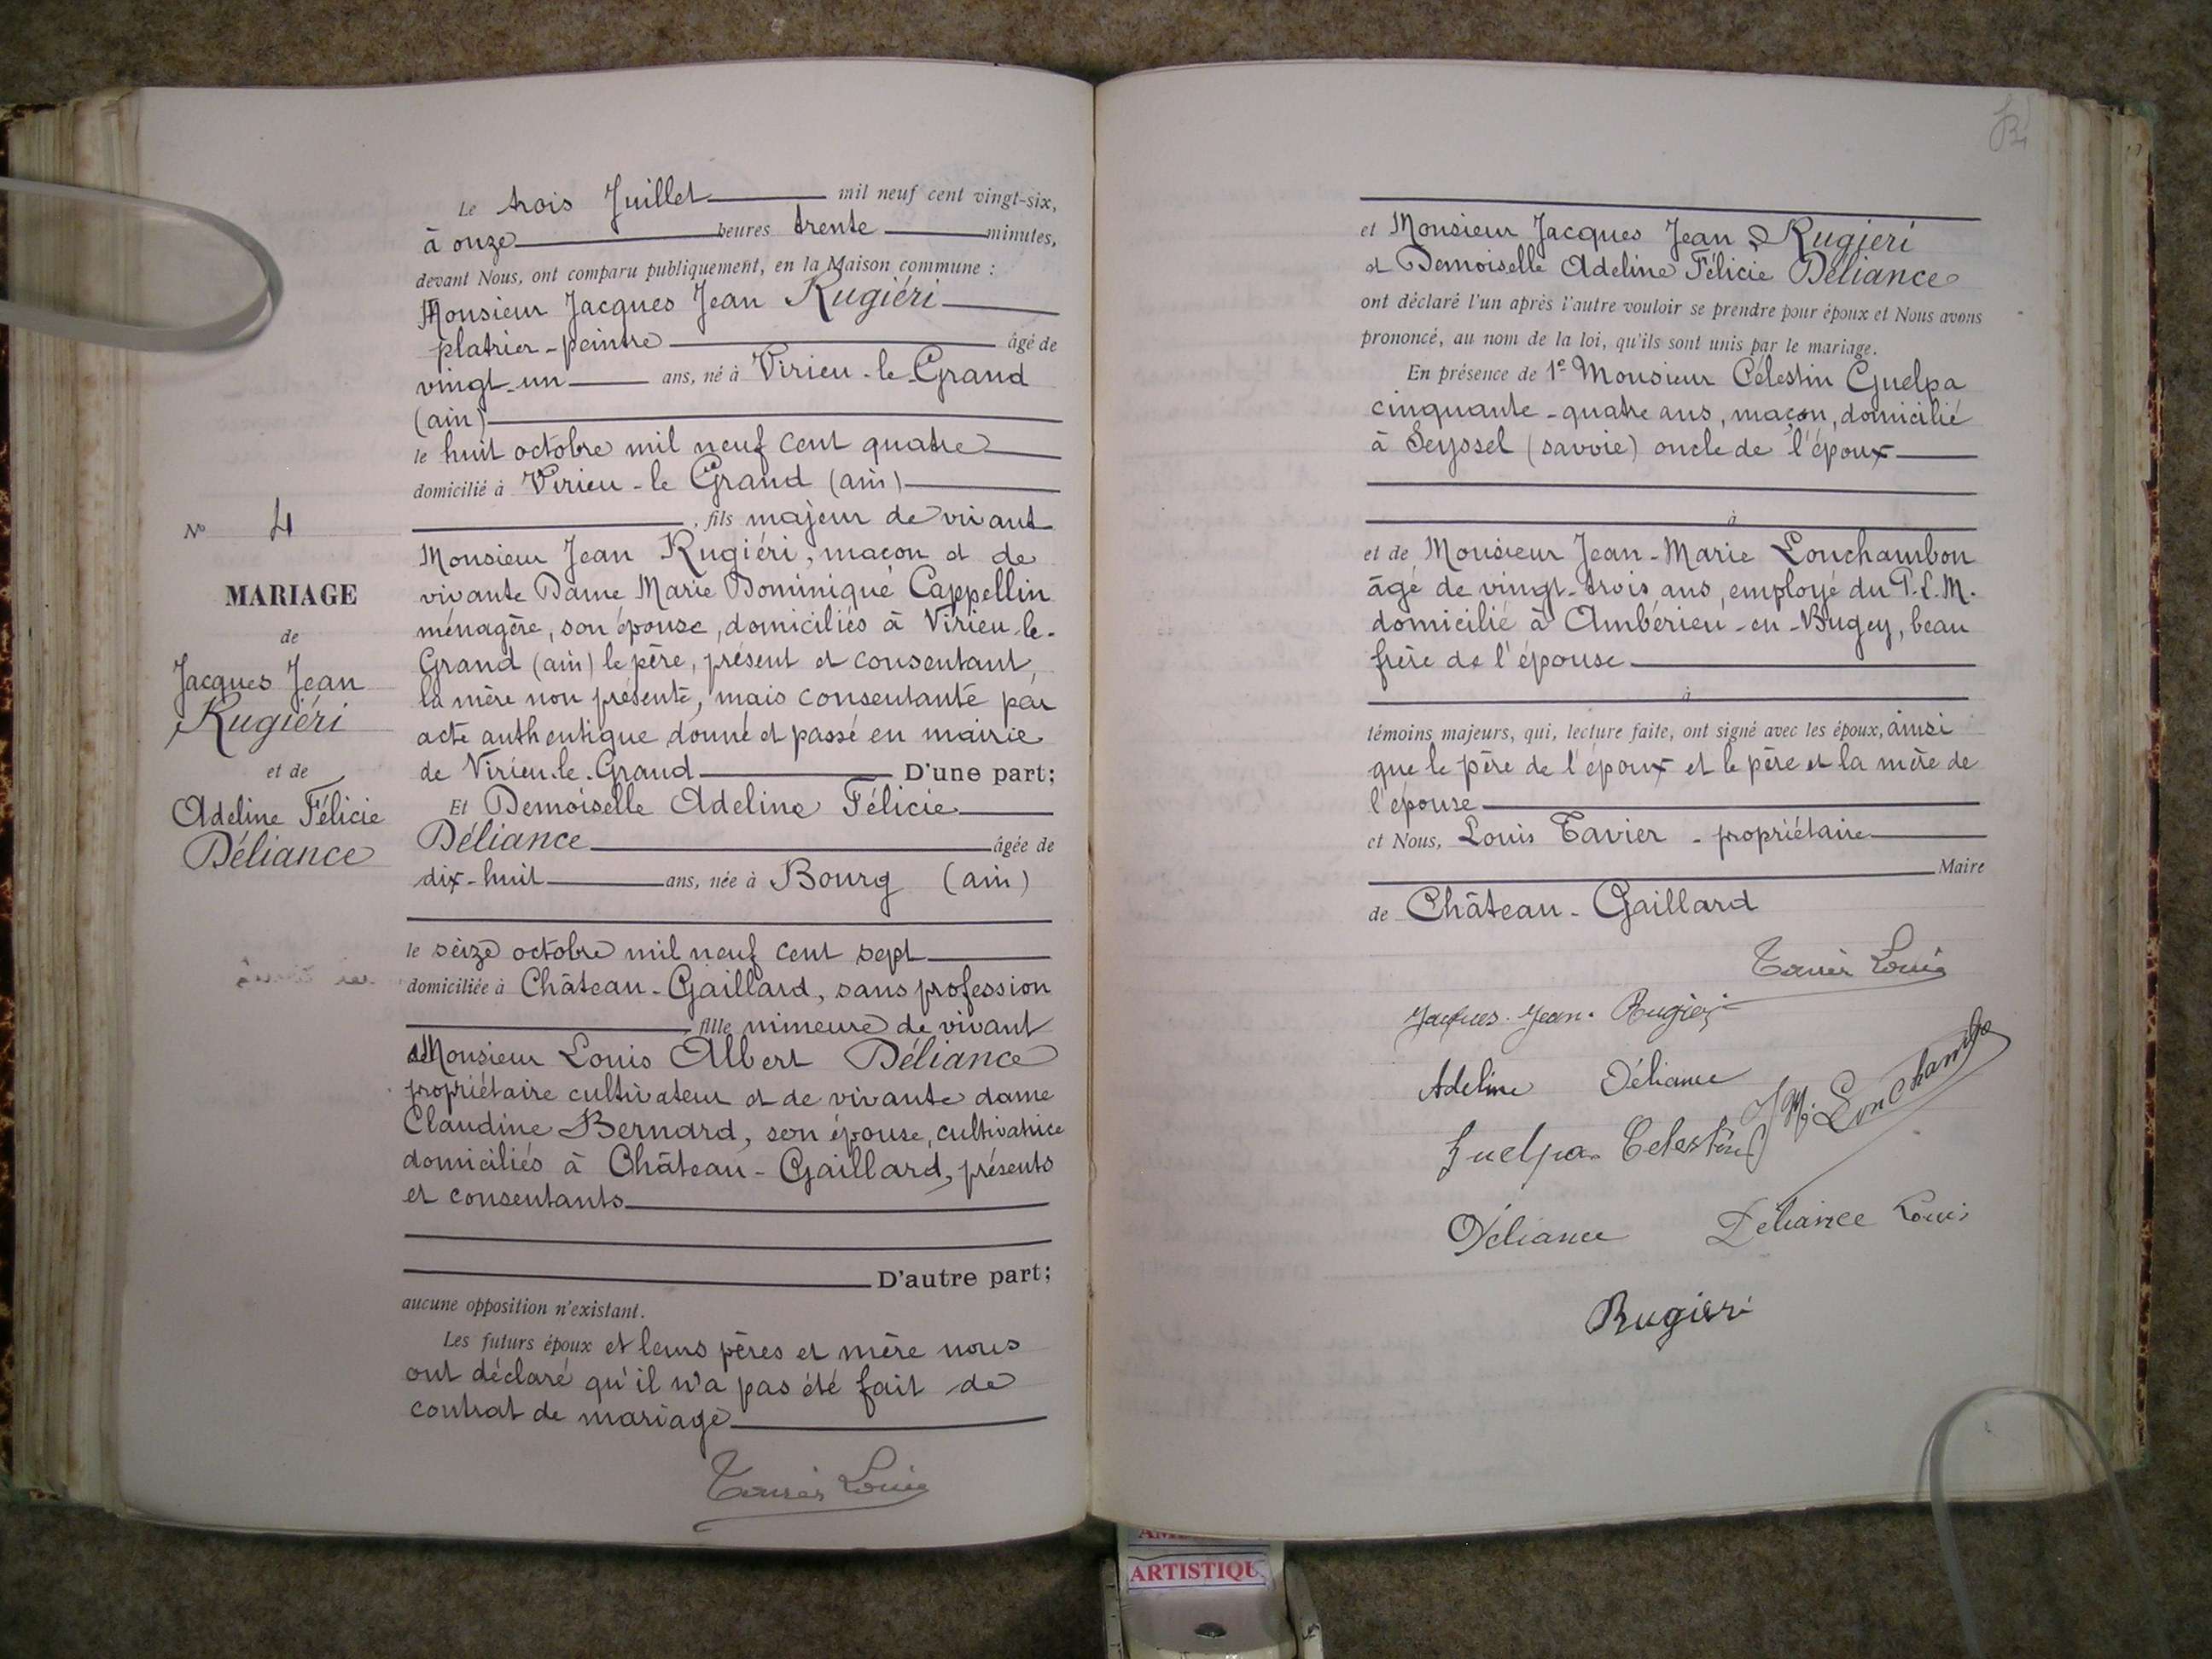 Le trois Juillet mil neuf cent vingt-six,
à onze heures trente minutes,
devant Nous, ont comparu publiquement, en la Maison commune :
Monsieur Jacques Jean Rugiéri
platrier-peintre âgé de
vingt-un ans, né à Virieu-le-Grand
(ain)
le huit octobre mil neuf cent quatre
domicilié à Virieu-le Grand (ain)
, fils majeur de vivant
Monsieur Jean Rugiéri, maçon et de
vivante Dame Marie Dominique Cappellin
ménagère, son épouse, domiciliés à Virieu-le-
Grand (ain) le père, présent et consentant,
la mère non présente, mais consentante par
acte authentique donné et passé en mairie
de Virieu-le-Grand D'une part;
Et Demoiselle Adeline Félicie
Déliance âgée de
dix-huit ans, née à Bourg (ain)
le seize octobre mil neuf cent sept
domiciliée à Château-Gaillard, sans profession
fille mineure de vivant
Monsieur Louis Albert Déliance
propriétaire cultivateur et de vivante dame
Claudine Bernard, son épouse, cultivatrice
domiciliés à Château-Gaillard, présents
et consentants
D'autre part;
aucune opposition n'existant.
Les futurs époux et leurs pères et mère nous
ont déclaré qu'il n'a pas été fait de
contrat de mariage
Tavier Louis
N° 4
MARIAGE
de
Jacques Jean
Rugiéri
et de
Adeline Félicie
Déliance
et Monsieur Jacques Jean Rugieri
et Demoiselle Adeline Félicie Déliance
ont déclaré l'un après l'autre vouloir se prendre pour époux et Nous avons
prononcé, au nom de la loi, qu'ils sont unis par le mariage.
En présence de 1° Monsieur Célestin Guelpa
cinquante-quatre ans, maçon, domicilié
à Seyssel (savoie) oncle de l'époux
à
et de Monsieur Jean-Marie Lonchambon
âgé de vingt-trois ans, employé du P.L.M.
domicilié à Ambérieu-en-Bugey, beau
frère de l'épouse
à
témoins majeurs, qui, lecture faite, ont signé avec les époux, ainsi
que le père de l'époux et le père et la mère de
l'épouse
et Nous, Louis Tavier - propriétaire
Maire
de Château-Gaillard
Tavier Louis
Jacques Jean Rugiéri
Adeline Déliance
J M. Lonchambo
Guelpa Celestin
Déliance Déliance Louis
Rugieri
ARTISTIQU